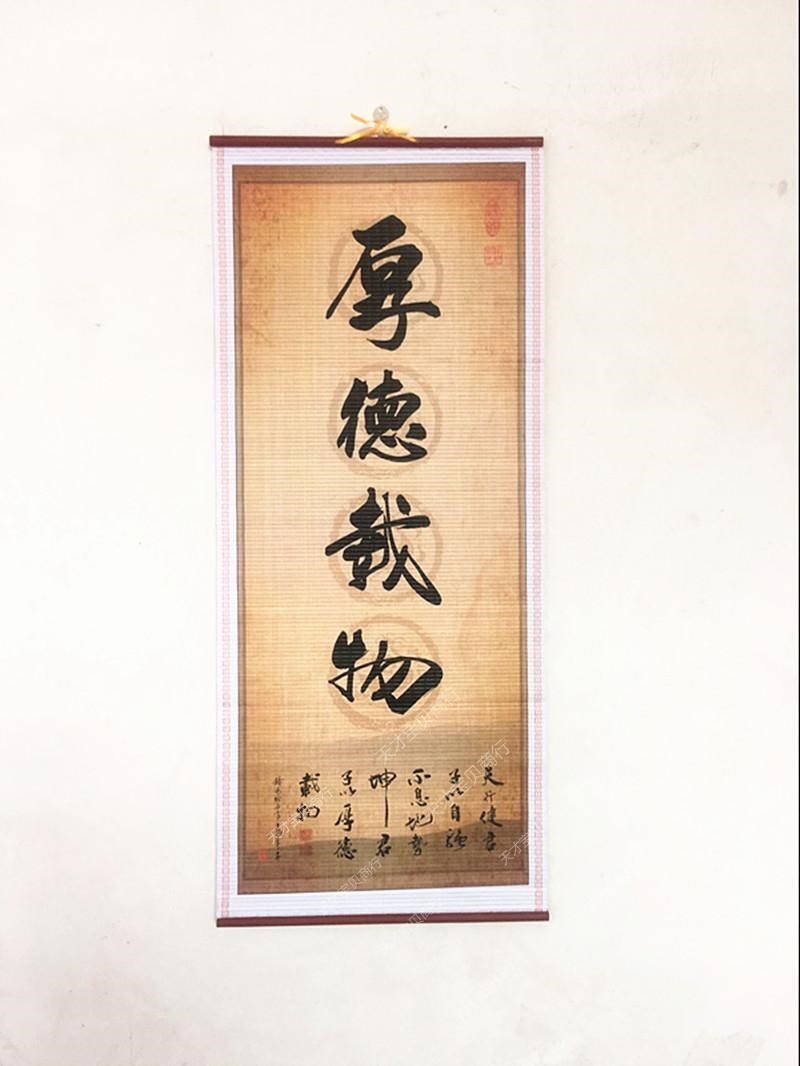 厚德载物
天行健君
子以自强
不息地势
坤君
子以厚德
载物
天才宝贝商行
天才宝贝商行